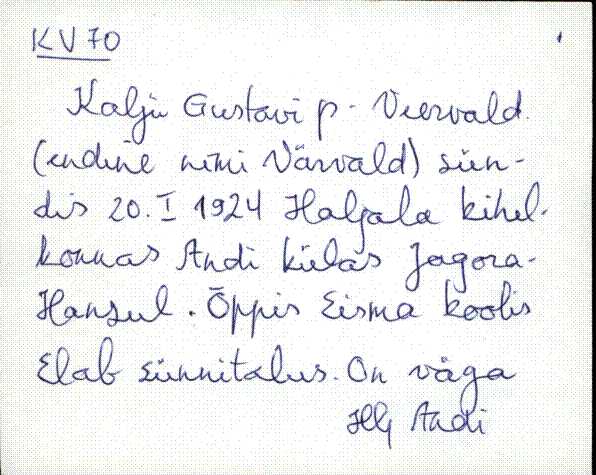 KV 70
Kalju Gustavi p. Veervald
(endine nimi Värvald) sün-
dis 20. I 1924 Haljala kihel-
konnas Andi külas Jagora-
Hansul. Õppis Eisma koolis
Elab sünnitalus. On väga
Hlj Andi